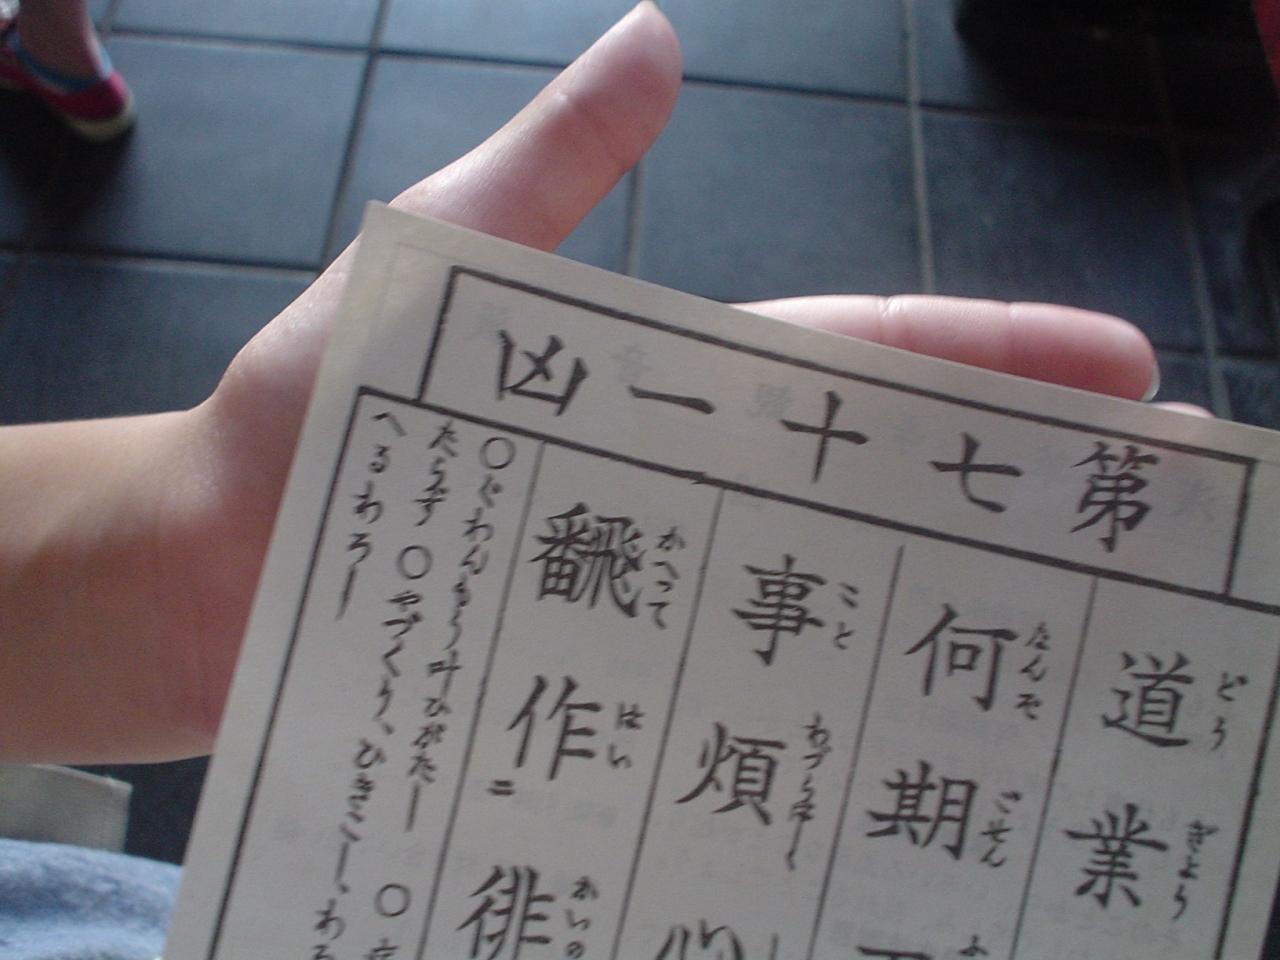 第七十一凶
道業
どう ぎよう
何期
なんぞ ごせん よ
事煩心
こと わづらはし
飜作ニ徘
かへつて はい かいの
○ぐわんもう叶ひがたし ○病
たらず ○やづくり、ひきこし、わろ
へるわろし